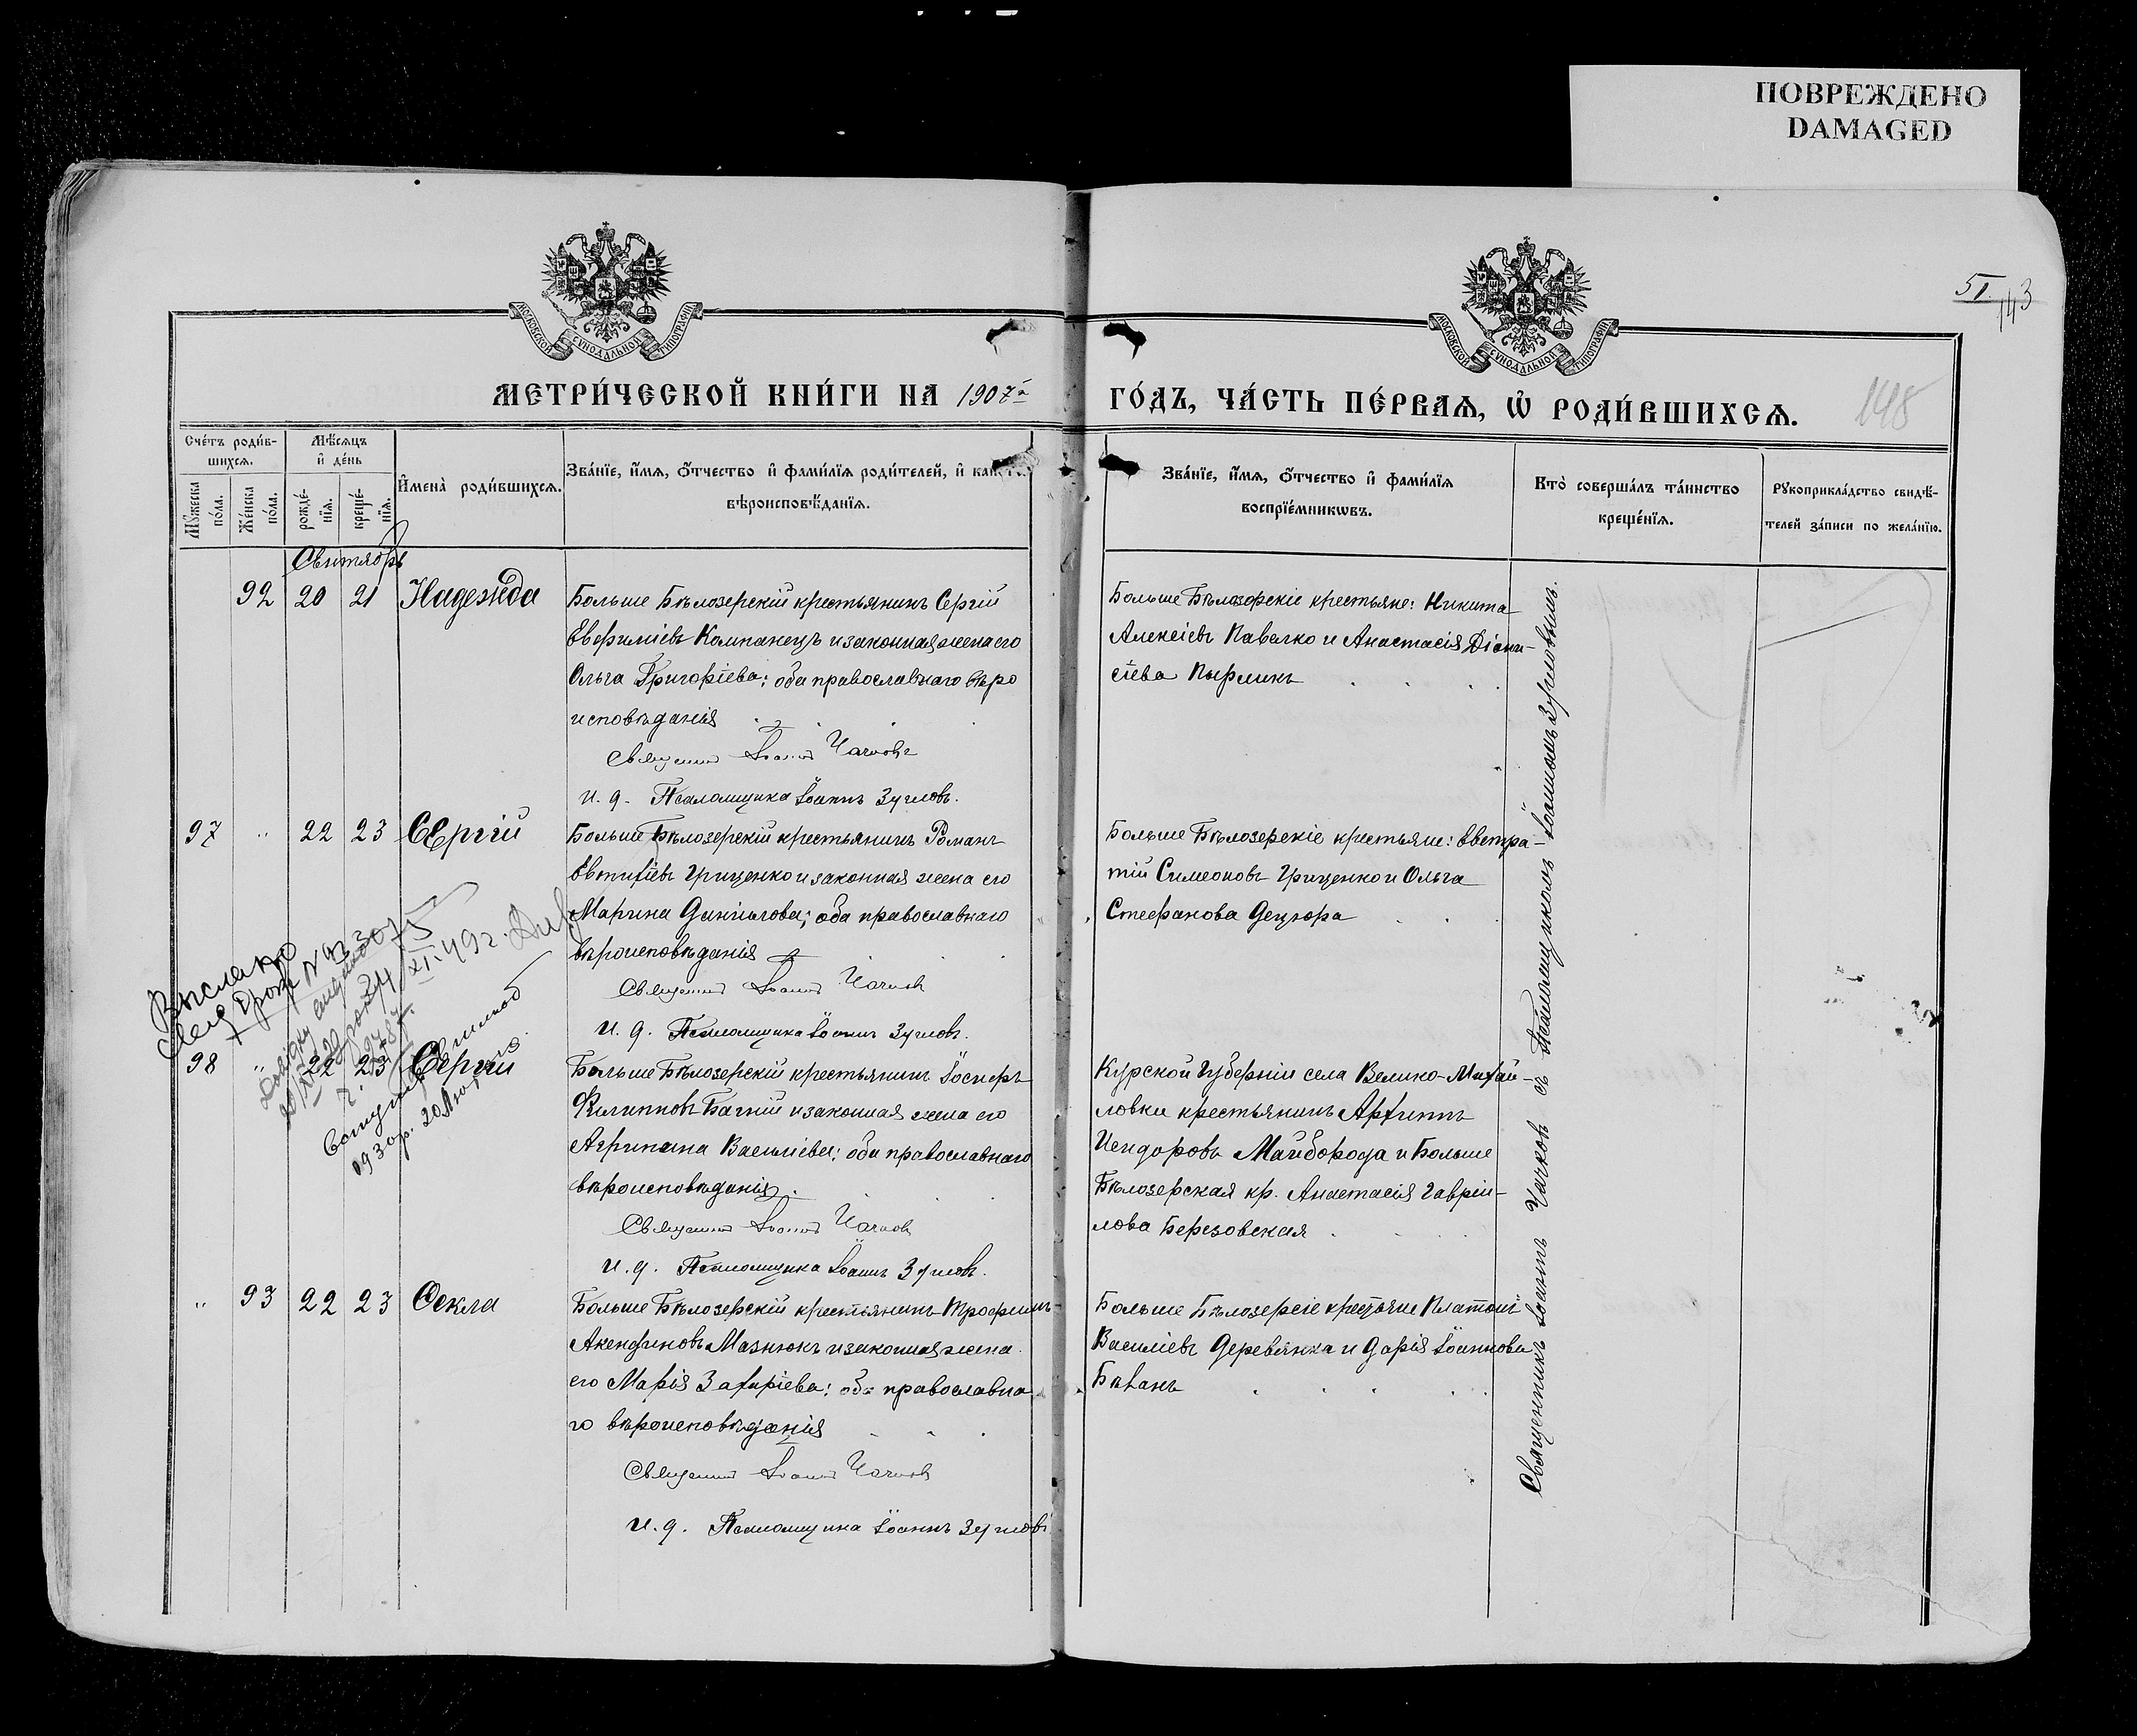 ПОВРЕЖДЕНО
DAMAGED
51.
143
148
МОСКОВСКОЙ СѴНОДАЛЬНОЙ ТИПОГРАФІИ
МОСКОВСКОЙ СѴНОДАЛЬНОЙ ТИПОГРАФІИ
МЕТРИ́ЧЕСКОЙ КНИ́ГИ НА 1907й
ГО́ДЪ, ЧА́СТЬ ПЕ́РВАѦ, Ѡ҆ РОДИ́ВШИХСѦ.
Сче́тъ роди́в-
шихсѧ.
Мѣ́сѧцъ
и҆ де́нь
Мꙋ́жеска
по́ла.
Же́нска
по́ла.
рожде́-
нїѧ.
креще́-
нїѧ.
И҆мена̀ роди́вшихсѧ.
Зва́нїе, и҆́мѧ, ѻ҆́тчество и҆ фами́лїѧ роди́телей, и҆
вѣроисповѣ́данїѧ.
Зва́нїе, и҆́мѧ, ѻ҆́тчество и҆ фами́лїѧ
воспрїе́мникѡвъ.
Кто̀ соверша́лъ та́инство
креще́нїѧ.
Рꙋкоприкла́дство свидѣ́-
телей за́писи по жела́нїю.
Сентябрь
92 20 21 Надежда
Больше Бѣлозерскій крестьянинъ Сергій
Евфиміевъ Компанецъ и законная жена его
Ольга Григоріева; оба православнаго вѣро
исповѣданія
Священникъ Іоаннъ Чачковъ
И. д. Псаломщика Іоаннъ Зугловъ.
Больше Бѣлозерскіе крестьяне: Никита
Алексіевъ Павалко и Анастасія Діони-
сіева Пырликъ
97 " 22 23 Сергій
Больше Бѣлозерскій крестьянинъ Романъ
Евтихіевъ Гриценко и законная жена его
Марина Даніилова; оба православнаго
вѣроисповѣданія
Священникъ Іоаннъ Чачковъ
И. д. Псаломщика Іоаннъ Зугловъ.
Больше Бѣлозерскіе крестьяне: Евстра-
тій Симеоновъ Гриценко и Ольга
Стефанова Децюра
Выслано
98 " 22 23 Сергій
Больше Бѣлозерскій крестьянинъ Іосифъ
Филипповъ Багній и законная жена его
Агрипина Василіева; оба православнаго
вѣроисповѣданія.
Священникъ Іоаннъ Чачковъ
И. д. Псаломщика Іоаннъ Зугловъ.
Курской Губерніи села Велико-Михай-
ловки крестьянинъ Архиппъ
Исидоровъ Майборода и Больше
Бѣлозерская кр. Анастасія Гаврии-
лова Березовская
" 93 22 23 Ѳекла
Больше Бѣлозерскій крестьянинъ Трофимъ
Акиндиновъ Мазнюкъ и законная жена
его Марія Захаріева; оба православна
го вѣроисповѣданія
Священникъ Іоаннъ Чачковъ
И. д. Псаломщика Іоаннъ Зугловъ
Больше Бѣлозерсіе крестьяне Платонъ
Василіевъ Деревянка и Дарія Іоаннова
Бѣванъ
Священникъ Іоаннъ Чачковъ съ Псаломщикомъ Іоанномъ Зугловымъ.